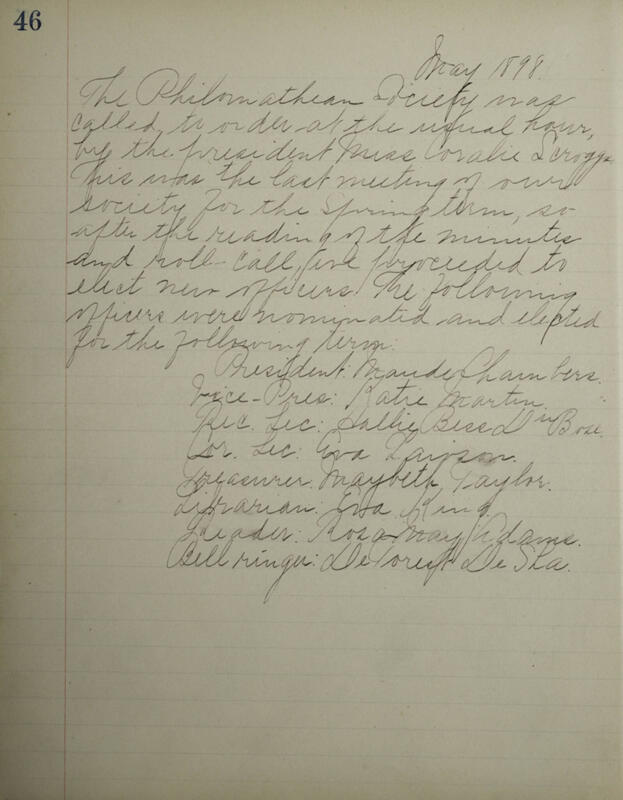 46
May 1898.
The Philomathean Society was
called to order at the usual hour,
by the president Miss Coralie Scroggs
This was the last meeting of our
society for the Spring term, so
after the reading of the minutes
and roll-call, we proceeded to
elect new officers. The following
officers were nominated and elected
for the following term:
President: Maude Chambers.
Vice-Pres: Katie Martin
Rec. Sec: Sallie Bess Du Bose
Cor. Sec: Eva Lawson.
Treasurer: Maybeth Taylor.
Librarian: Eva King
Leader: Rosa May Adams.
Bell ringer: DeForest De Sha.